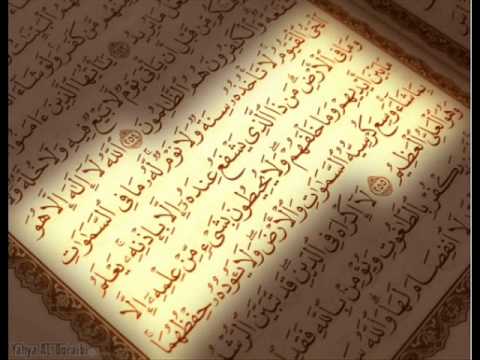 مَّن كَفَرَ وَلَوْ شَآءَ
مَا يُرِيدُ ٢٥٣ يَٰٓأَيُّهَا ٱلَّذِينَ ءَامَنُوٓا۟
مِّن قَبْلِ أَن يَأْتِىَ يَوْمٌ لَّا بَيْعٌ فِيهِ وَلَا خُلَّةٌ وَلَا
وَٱلْكَٰفِرُونَ هُمُ ٱلظَّٰلِمُونَ ٢٥٤ ٱللَّهُ لَآ إِلَٰهَ إِلَّا هُوَ
ٱلْحَىُّ ٱلْقَيُّومُ لَا تَأْخُذُهُۥ سِنَةٌ وَلَا نَوْمٌ لَّهُۥ مَا فِى ٱلسَّمَٰوَٰتِ
وَمَا فِى ٱلْأَرْضِ مَن ذَا ٱلَّذِى يَشْفَعُ عِندَهُۥٓ إِلَّا بِإِذْنِهِۦ يَعْلَمُ
مَا بَيْنَ أَيْدِيهِمْ وَمَا خَلْفَهُمْ وَلَا يُحِيطُونَ بِشَىْءٍ مِّنْ عِلْمِهِۦٓ إِلَّا
بِمَا شَآءَ وَسِعَ كُرْسِيُّهُ ٱلسَّمَٰوَٰتِ وَٱلْأَرْضَ وَلَا يَـُٔودُهُۥ حِفْظُهُمَا
وَهُوَ ٱلْعَلِىُّ ٱلْعَظِيمُ ٢٥٥ لَآ إِكْرَاهَ فِى ٱلدِّينِ قَد تَّبَيَّنَ ٱلرُّشْدُ
يَكْفُرْ بِٱلطَّٰغُوتِ وَيُؤْمِنۢ بِٱللَّهِ فَقَدِ
لَا ٱنفِصَامَ لَهَا وَٱللَّهُ